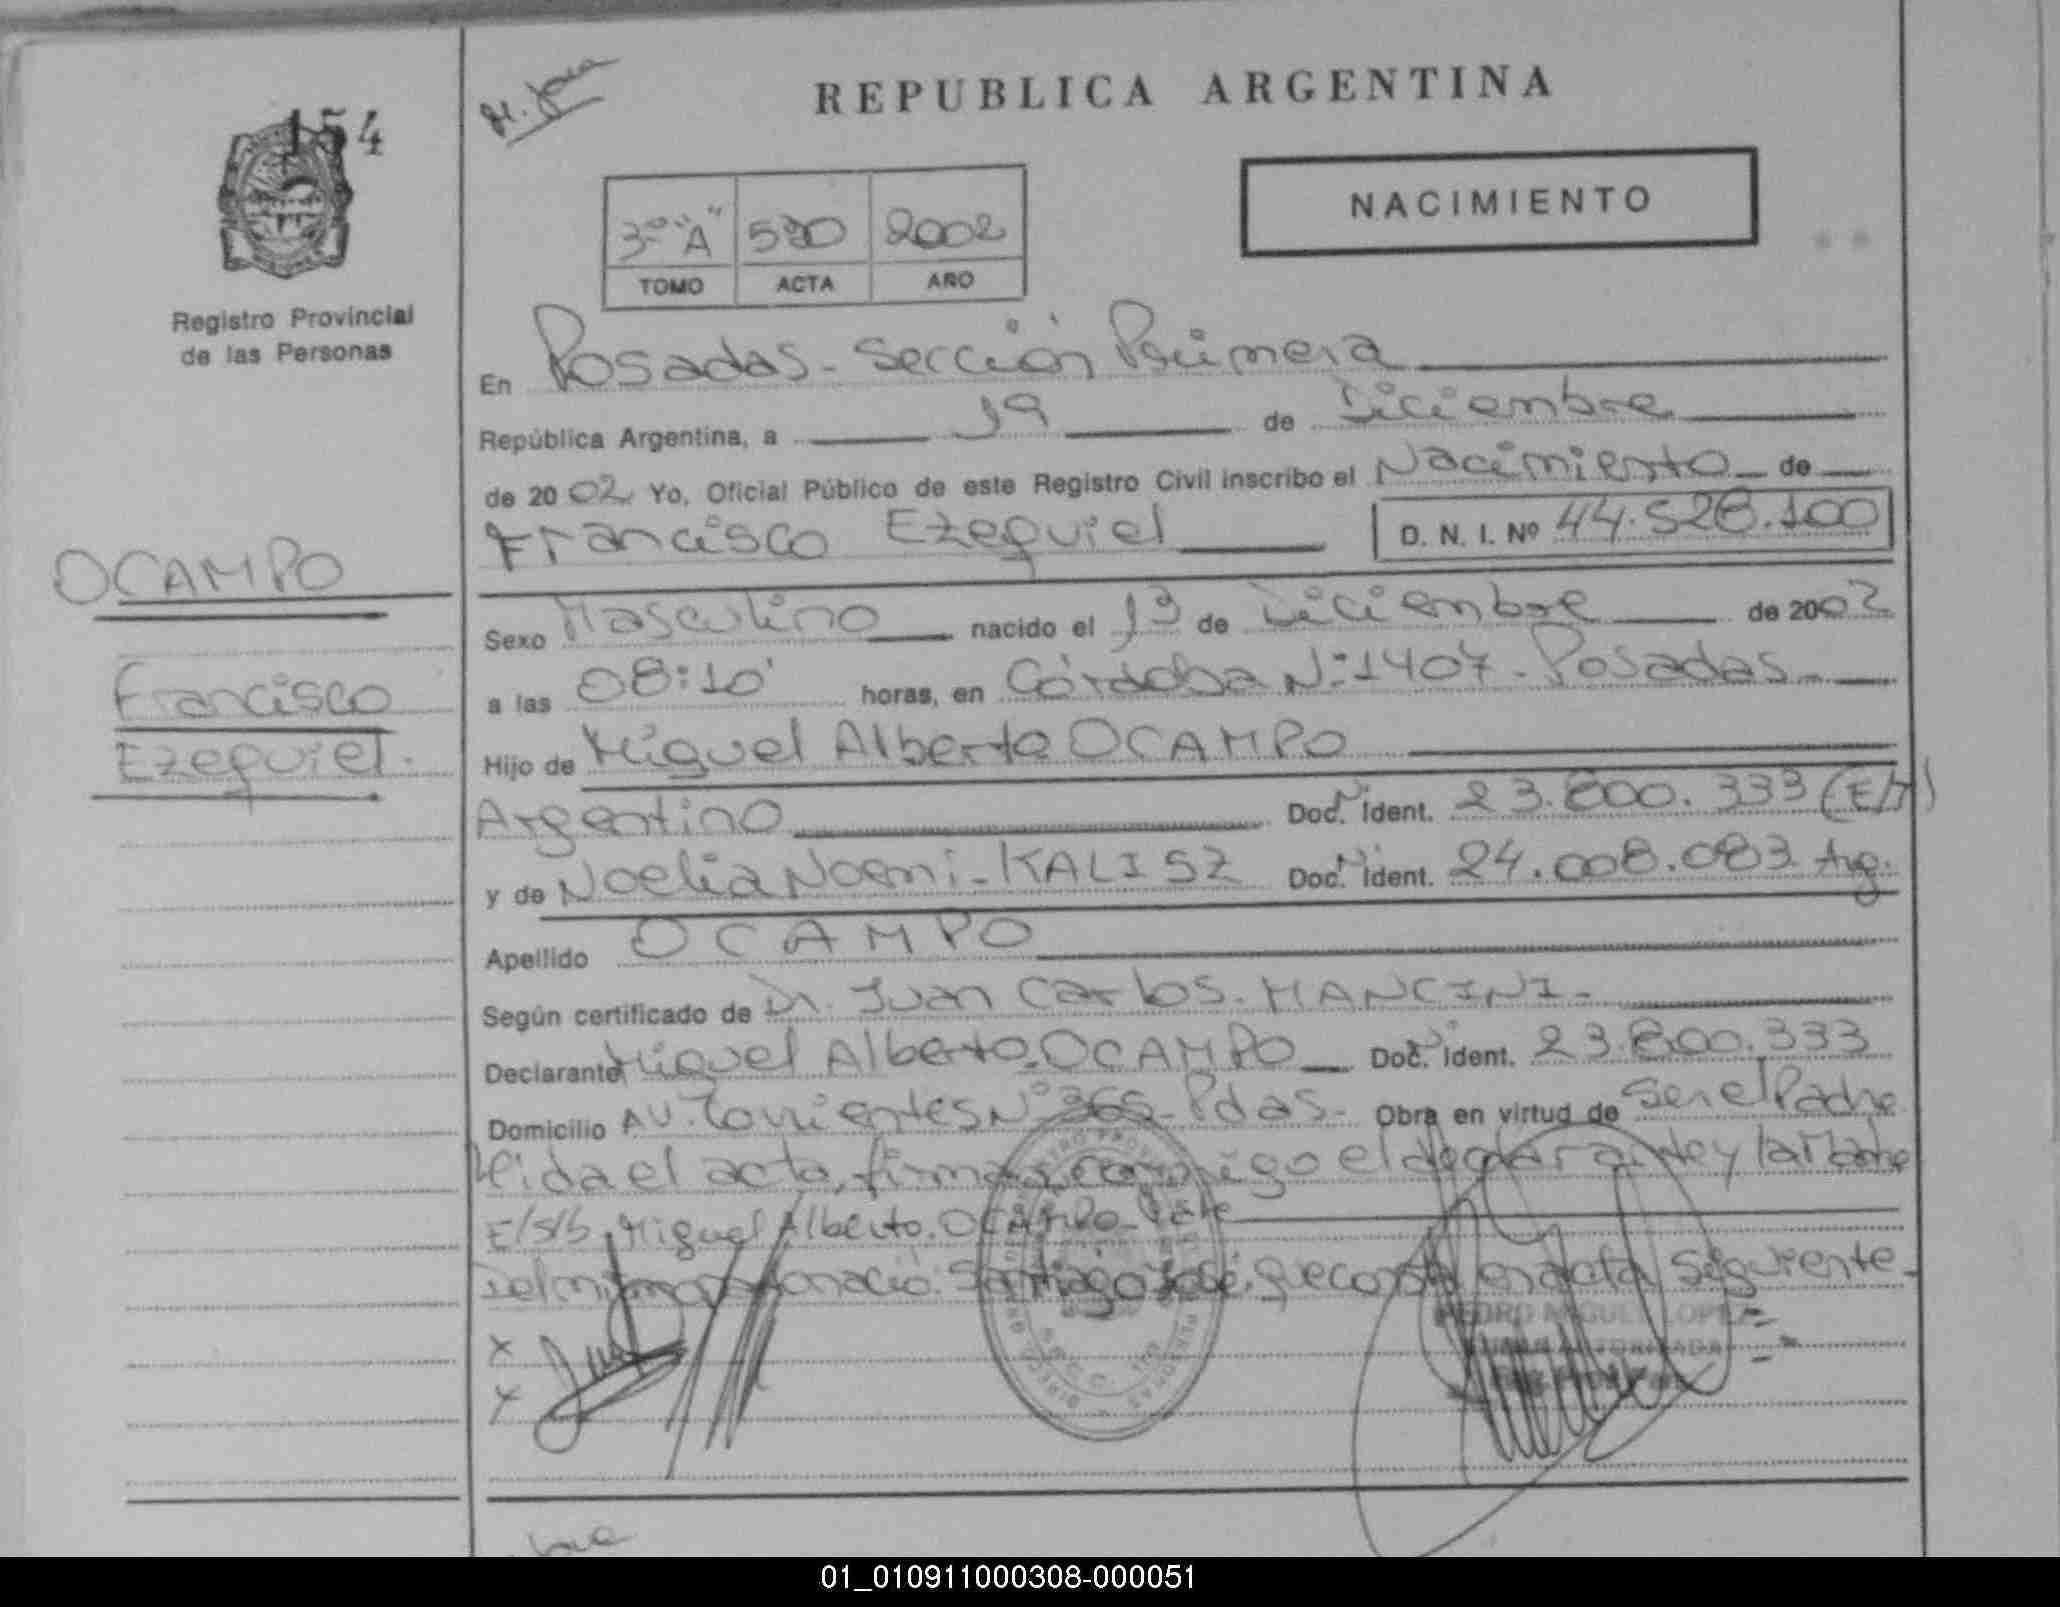 154
REPUBLICA ARGENTINA
NACIMIENTO
3º "A" 590 2002
TOMO ACTA AÑO
Registro Provincial
de las Personas
En Posadas - Sección Primera
República Argentina, a 19 de Diciembre
de 2002 Yo, Oficial Público de este Registro Civil inscribo el Nacimiento de
Francisco Ezequiel D. N. I. Nº 44.528.100
OCAMPO
Francisco
Ezequiel.
Sexo Masculino nacido el 13 de Diciembre de 2002
a las 08:10' horas, en Córdoba Nº 1407 - Posadas
Hijo de Miguel Alberto OCAMPO
Argentino Doc. Ident. 23.800.333
y de Noelia Noemi - KALISZ Doc. Ident. 24.008.083 Arg.
Apellido OCAMPO
Según certificado de Dr. Juan Carlos. MANCINI-
Declarante Miguel Alberto. OCAMPO Doc. Ident. 23.800.333
Domicilio AV. Corrientes Nº 365 - Pdas. - Obra en virtud de Ser el Padre
leida el acta, firman conmigo el declarante y la Madre
E/S/b, Miguel Alberto. OCAMPO. Vale
Del mismo parto nació: Santiago José, que consta en acta siguiente-
PEDRO MIGUEL LOPEZ
x
x
01_010911000308-000051